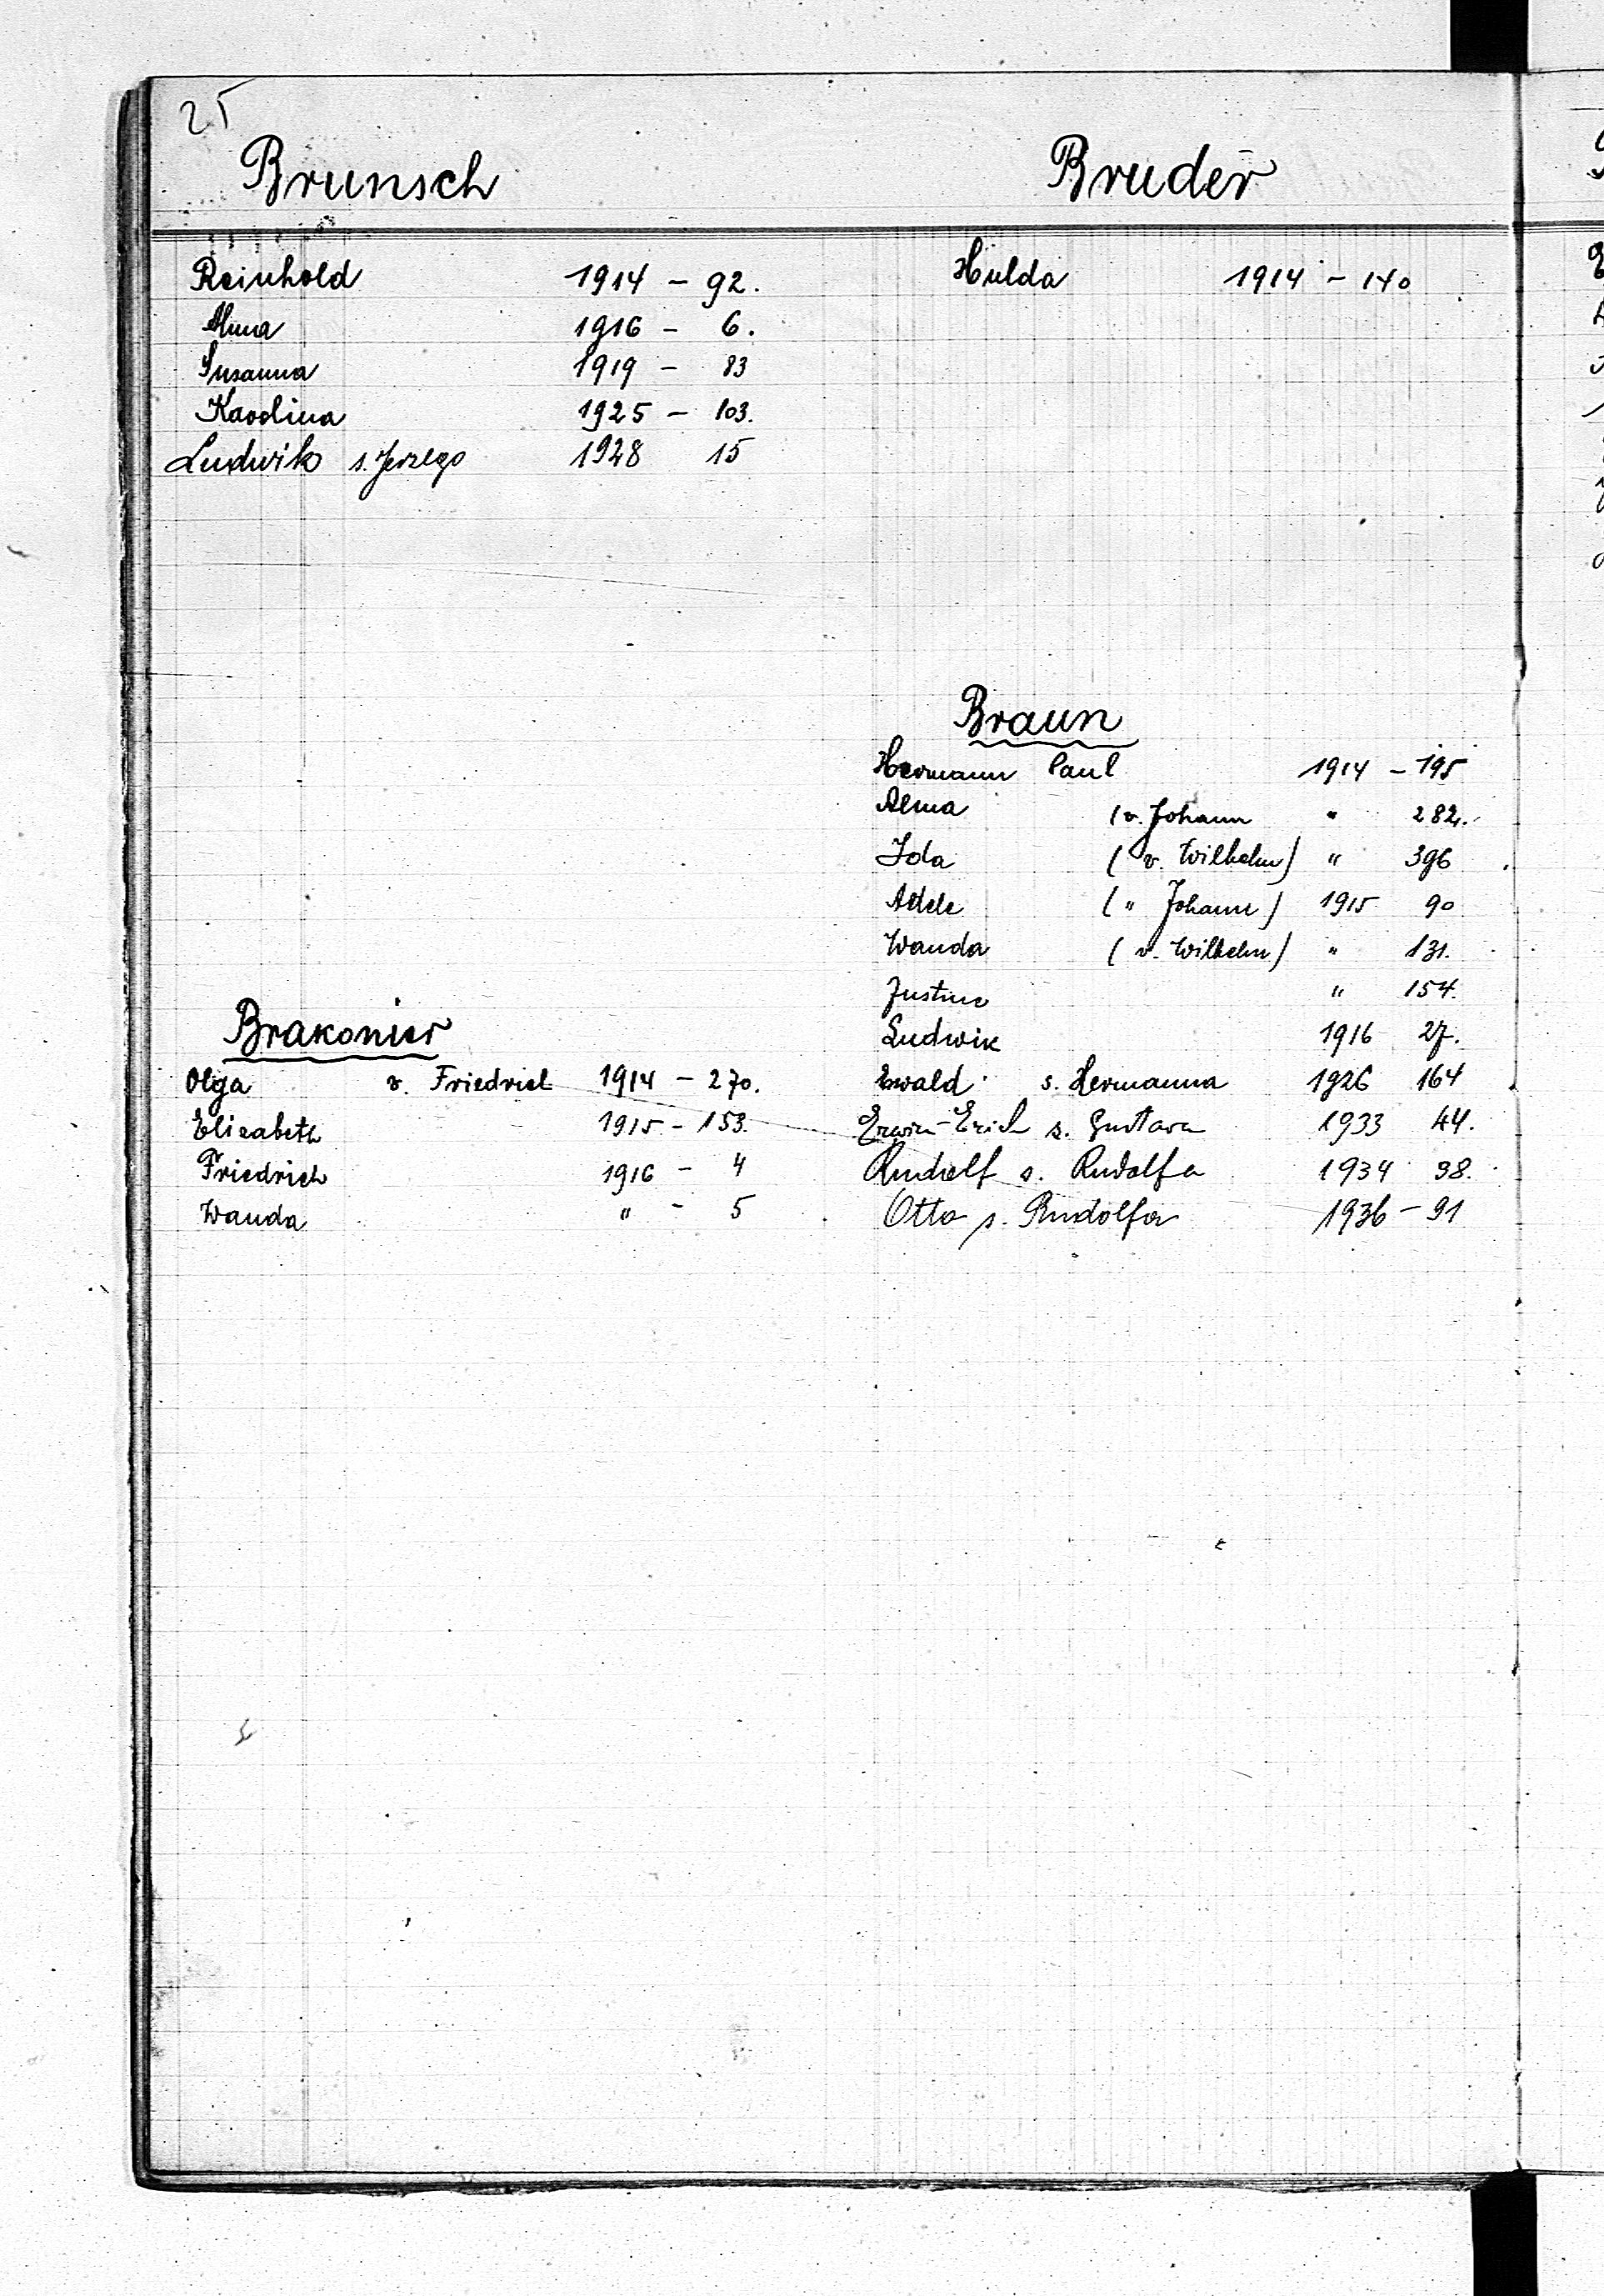 25
Brunsch
Reinhold 1914 - 92.
Alma 1916 - 6.
Susanna 1919 - 83
Karolina 1925 - 103.
Ludwik s. Jerzego 1928 15
Brakonier
Olga v. Friedrich 1914 - 270.
Elisabeth 1915 - 153.
Friedrich 1916 - 4
Wanda " - 5
Bruder
Hulda 1914 - 140
Braun
Hermann Paul 1914 - 195
Alma (v. Johann " 282.
Ida (v. Wilhelm) " 396
Adele (" Johann) 1915 90
Wanda (v. Wilhelm) " 131.
Justine " 154.
Ludwik 1916 27.
Ewald s. Hermanna 1926 164
Erwin-Erich s. Gustava 1933 44.
Rudolf s. Rudolfa 1934 38.
Otto s. Rudolfa 1936 - 91